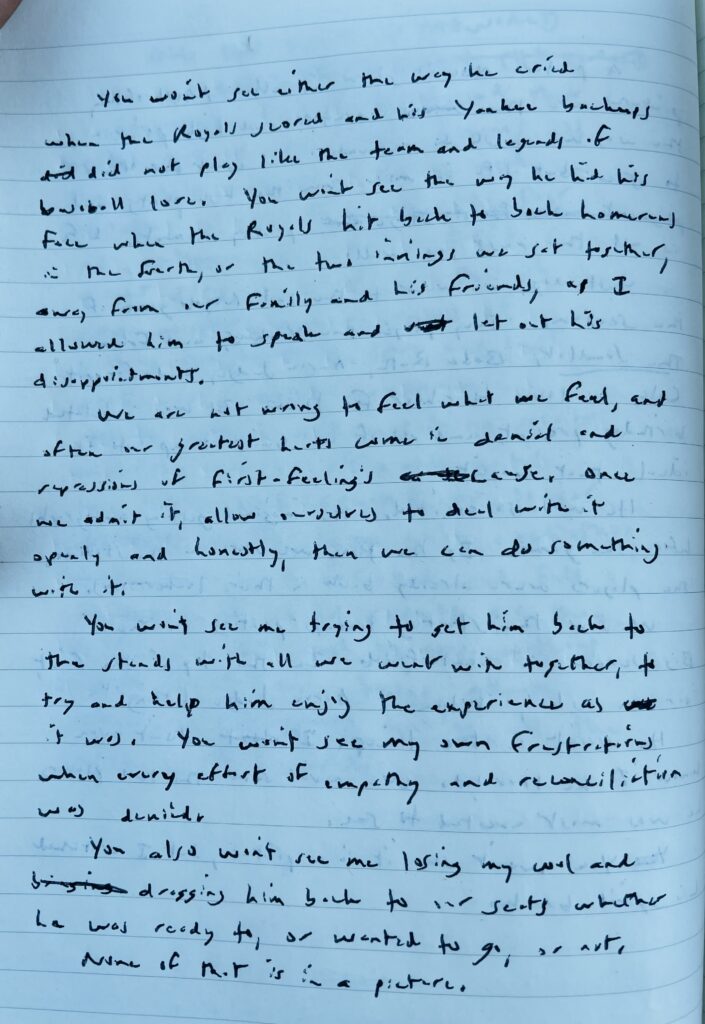 You won't see either the way he cried
when the Royals scored and his Yankee backups
did did not play like the team and legends of
baseball lore. You won't see the way he hid his
face when the Royals hit back to back homeruns
in the fourth, or the two innings we sat together,
away from our family and his friends, as I
allowed him to speak and let out his
disappointments.
We are not wrong to feel what we feel, and
often our greatest hurts come in denial and
repressions of first-feeling's cause. Once
we admit it, allow ourselves to deal with it
openly and honestly, then we can do something
with it.
You won't see me trying to get him back to
the stands with all we went with together, to
try and help him enjoy the experience as
it was. You won't see my own frustrations
when every effort of empathy and reconciliation
was denied.
You also won't see me losing my cool and
bringing dragging him back to our seats whether
he was ready to, or wanted to go, or not.
None of that is in a picture.